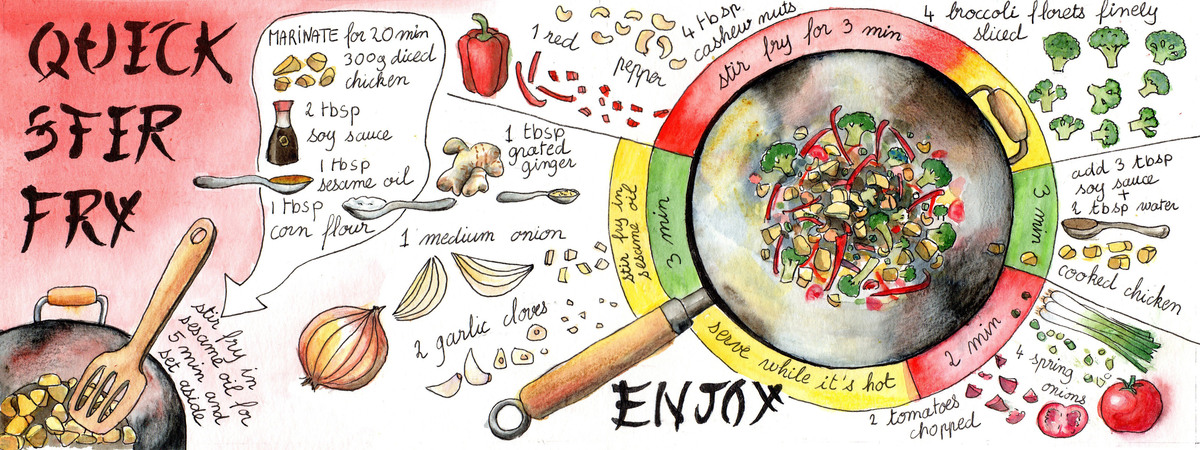 QUICK
STIR
FRY
MARINATE for 20 min
300g diced
chicken
2 tbsp
soy sauce
1 tbsp
sesame oil
1 tbsp
corn flour
stir fry in
sesame oil for
5 min and
set aside
1 tbsp
grated
ginger
1 medium onion
2 garlic cloves
stir fry in
sesame oil
3 min
1 red
pepper
4 tbsp
cashew nuts
stir fry for 3 min
4 broccoli florets finely
sliced
3 min
add 3 tbsp
soy sauce
+
2 tbsp water
cooked chicken
2 min
4 spring
onions
2 tomatoes
chopped
serve while it's hot
ENJOY